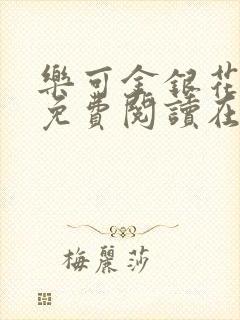 樂可金銀花
免費閱讀在
梅麗莎